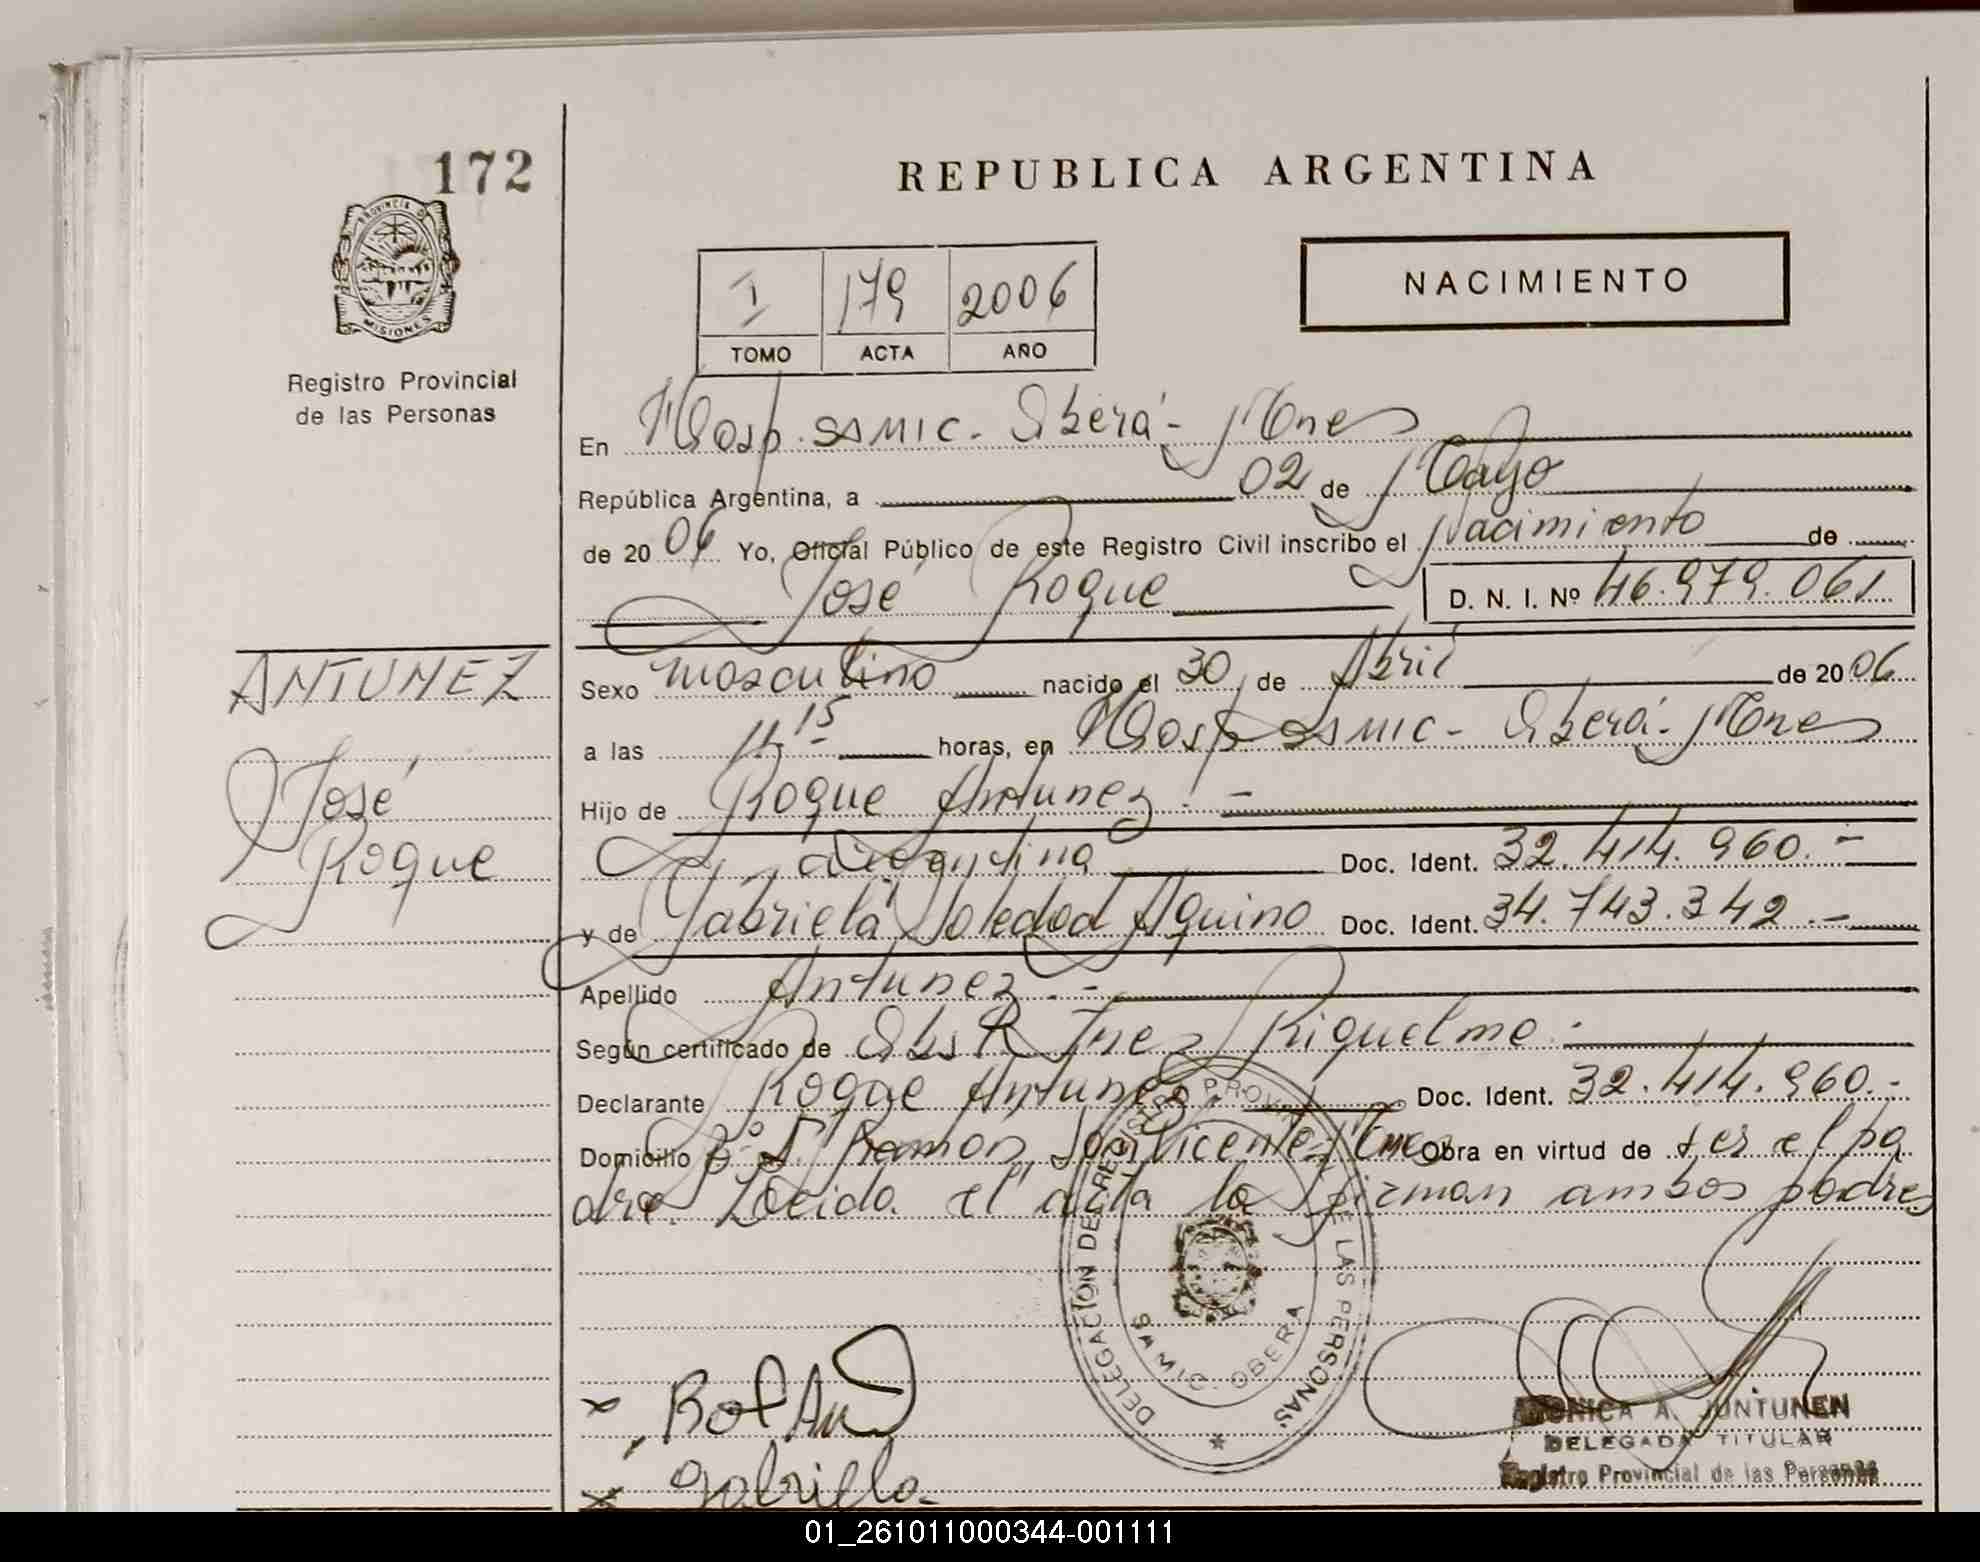 172
REPUBLICA ARGENTINA
PROVINCIA DE
MISIONES
Registro Provincial
de las Personas
I 179 2006
TOMO ACTA AÑO
NACIMIENTO
En Hosp. SAMIC - Oberá - Mnes
República Argentina, a 02 de Mayo
de 2006 Yo, Oficial Público de este Registro Civil inscribo el Nacimiento de
José Roque D. N. I. Nº 46.979.061
ANTUNEZ
José
Roque
Sexo masculino nacido el 30 de Abril de 2006
a las 11,15 horas, en Hosp SAMIC - Oberá - Mnes
Hijo de Roque Antunez. -
argentina Doc. Ident. 32.414.960. -
y de Gabriela Soledad Aquino Doc. Ident. 34.743.342. -
Apellido Antunez. -
Según certificado de Obst Inez Riquelme.
Declarante Roque Antunez. Doc. Ident. 32.414.960.-
Domicilio Bº S. Ramon San Vicente Mnes Obra en virtud de ser el pa
dre. Leida el acta la firman ambos padres
DELEGACION DEL REGISTRO PROVINCIAL DE LAS PERSONAS
SAMIC - OBERA
x
x Gabriella
MONICA A. JUNTUNEN
DELEGADA TITULAR
Registro Provincial de las Personas
01_261011000344-001111